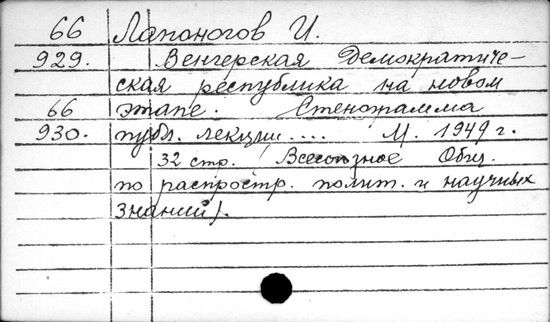 66 Лапоногов И.
929. Венгерская Демократиче-
ская республика на новом
66 этапе. Стенограмма
930. публ. лекции.... М. 1949 г.
32 стр. (Всесоюзное Общ.
по распростр. полит. и научных
знаний).